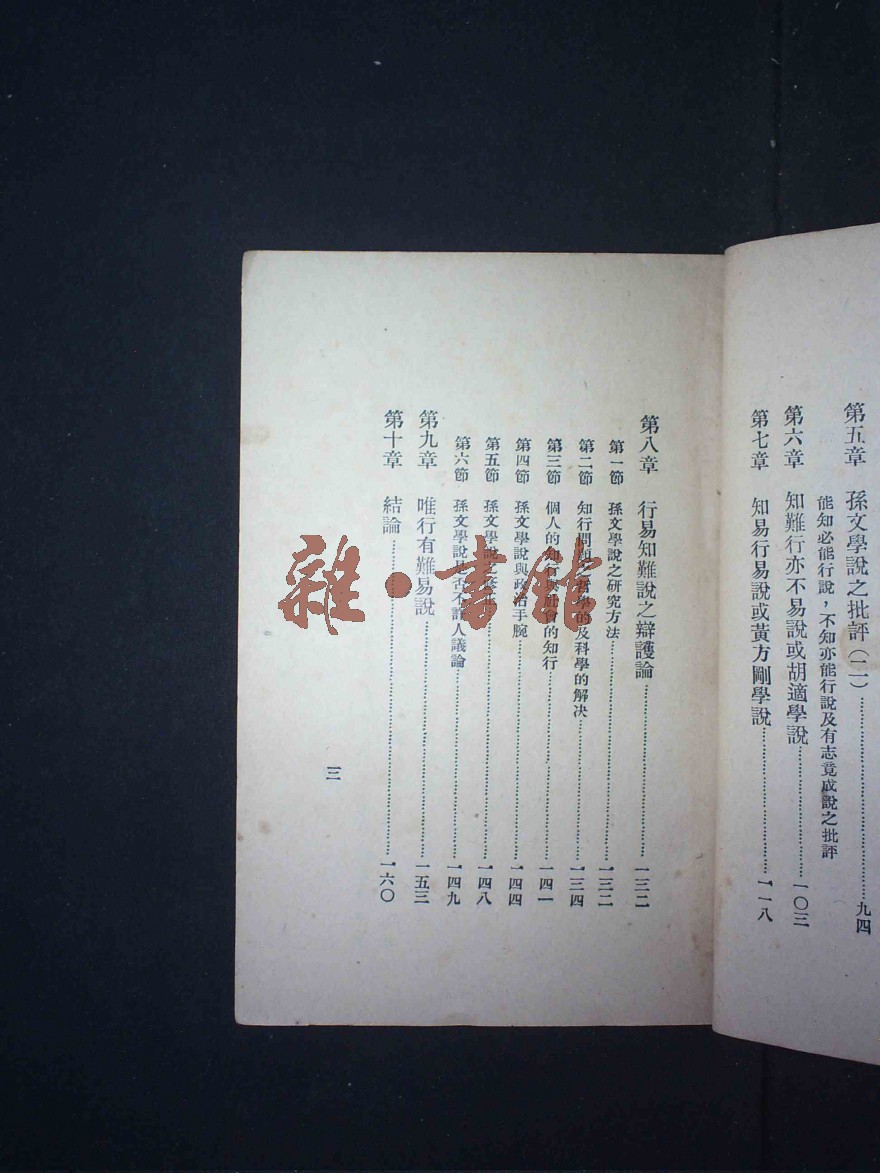 第五章　孫文學說之批評（二）……九四
能知必能行說，不知亦能行說及有志竟成說之批評
第六章　知難行亦不易說或胡適學說……一〇三
第七章　知易行易說或黃方剛學說……一一八
第八章　行易知難說之辯護論……一三二
第一節　孫文學說之研究方法……一三二
第二節　知行問題之哲學的及科學的解決……一三四
第三節　個人的知行與社會的知行……一四一
第四節　孫文學說與政治手腕……一四四
第五節　孫文學說之……一四八
第六節　孫文學說是否不許人議論……一四九
第九章　唯行有難易說……一五三
第十章　結論……一六〇
三
雜·書館